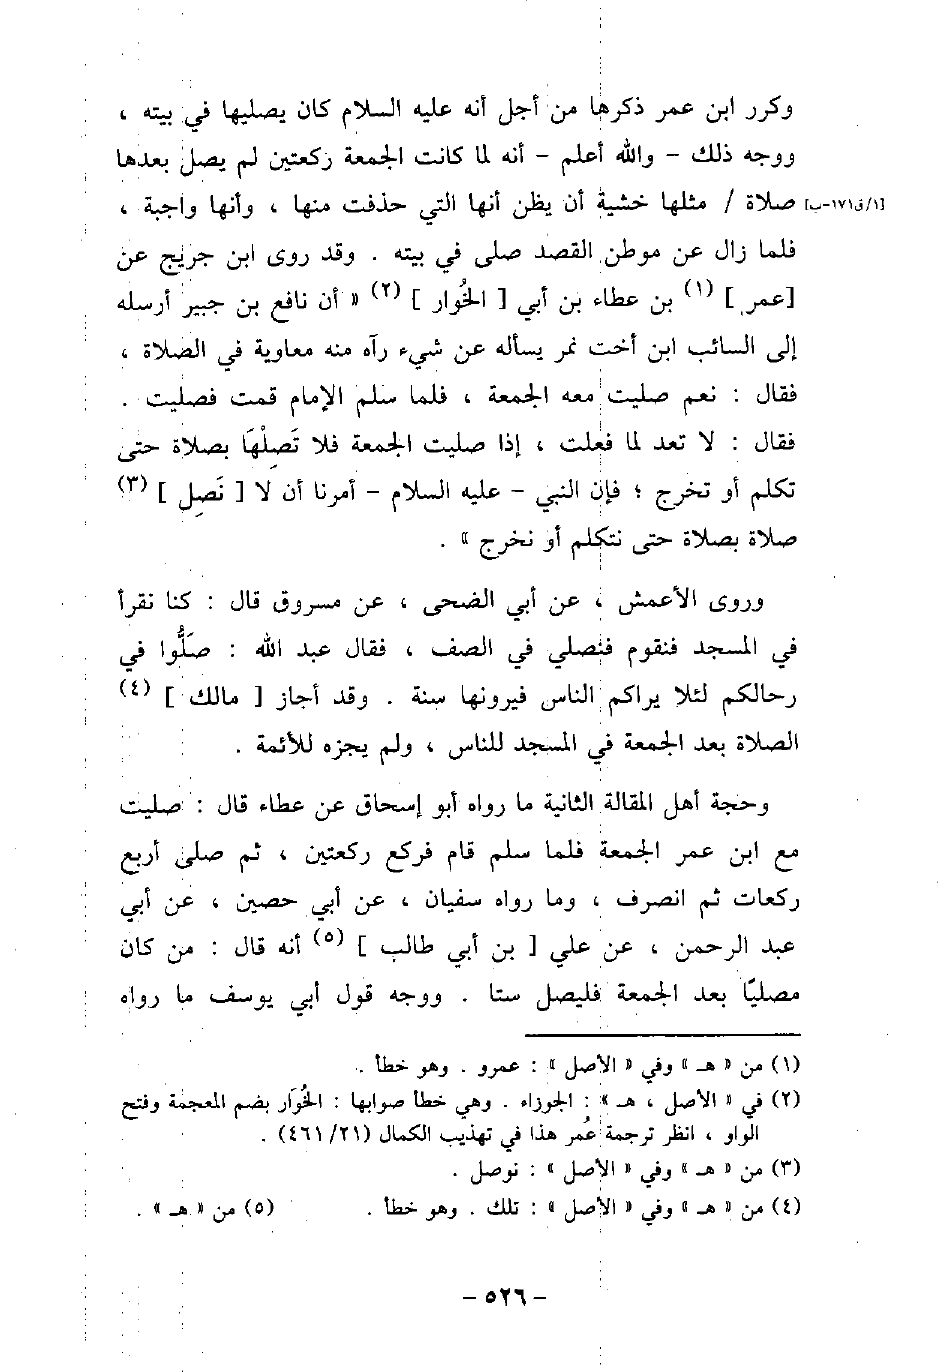 وكرر ابن عمر ذكرها من أجل أنه عليه السلام كان يصليها في بيته ،
ووجه ذلك - والله أعلم - أنه لما كانت الجمعة ركعتين لم يصل بعدها
[١/ق١٧١-ب] صلاة / مثلها خشية أن يظن أنها التي حذفت منها ، وأنها واجبة ،
فلما زال عن موطن القصد صلى في بيته . وقد روى ابن جريج عن
[عمر] (١) بن عطاء بن أبي [ الخُوار ] (٢) « أن نافع بن جبير أرسله
إلى السائب ابن أخت نمر يسأله عن شيء رآه منه معاوية في الصلاة ،
فقال : نعم صليت معه الجمعة ، فلما سلم الإمام قمت فصليت .
فقال : لا تعد لما فعلت ، إذا صليت الجمعة فلا تَصِلْهَا بصلاة حتى
تكلم أو تخرج ؛ فإن النبي - عليه السلام - أمرنا أن لا [ نَصِل ] (٣)
صلاة بصلاة حتى نتكلم أو نخرج » .
وروى الأعمش ، عن أبي الضحى ، عن مسروق قال : كنا نقرأ
في المسجد فنقوم فنصلي في الصف ، فقال عبد الله : صَلُّوا في
رحالكم لئلا يراكم الناس فيرونها سنة . وقد أجاز [ مالك ] (٤)
الصلاة بعد الجمعة في المسجد للناس ، ولم يجزه للأئمة .
وحجة أهل المقالة الثانية ما رواه أبو إسحاق عن عطاء قال : صليت
مع ابن عمر الجمعة فلما سلم قام فركع ركعتين ، ثم صلى أربع
ركعات ثم انصرف ، وما رواه سفيان ، عن أبي حصين ، عن أبي
عبد الرحمن ، عن علي [ بن أبي طالب ] (٥) أنه قال : من كان
مصليًا بعد الجمعة فليصل ستا . ووجه قول أبي يوسف ما رواه
(١) من « هـ » وفي « الأصل » : عمرو . وهو خطأ .
(٢) في « الأصل ، هـ » : الجوزاء . وهي خطأ صوابها : الخُوَار بضم المعجمة وفتح
الواو ، انظر ترجمة عُمر هذا في تهذيب الكمال (٤٦١/٢١) .
(٣) من « هـ » وفي « الأصل » : نوصل .
(٤) من « هـ » وفي « الأصل » : تلك . وهو خطأ . (٥) من « هـ » .
- ٥٢٦ -